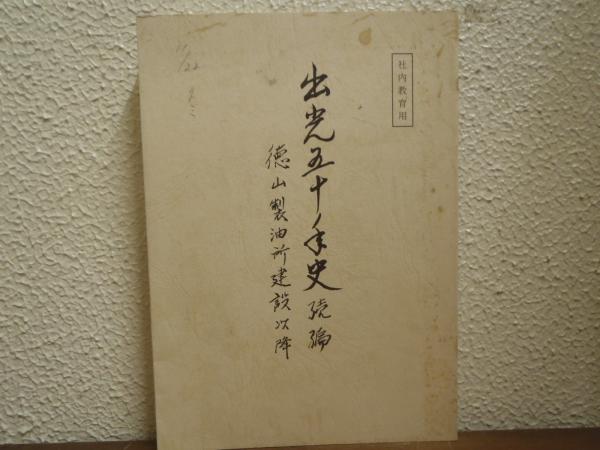 社内教育用
出光五十年史 続編
徳山製油所建設以降